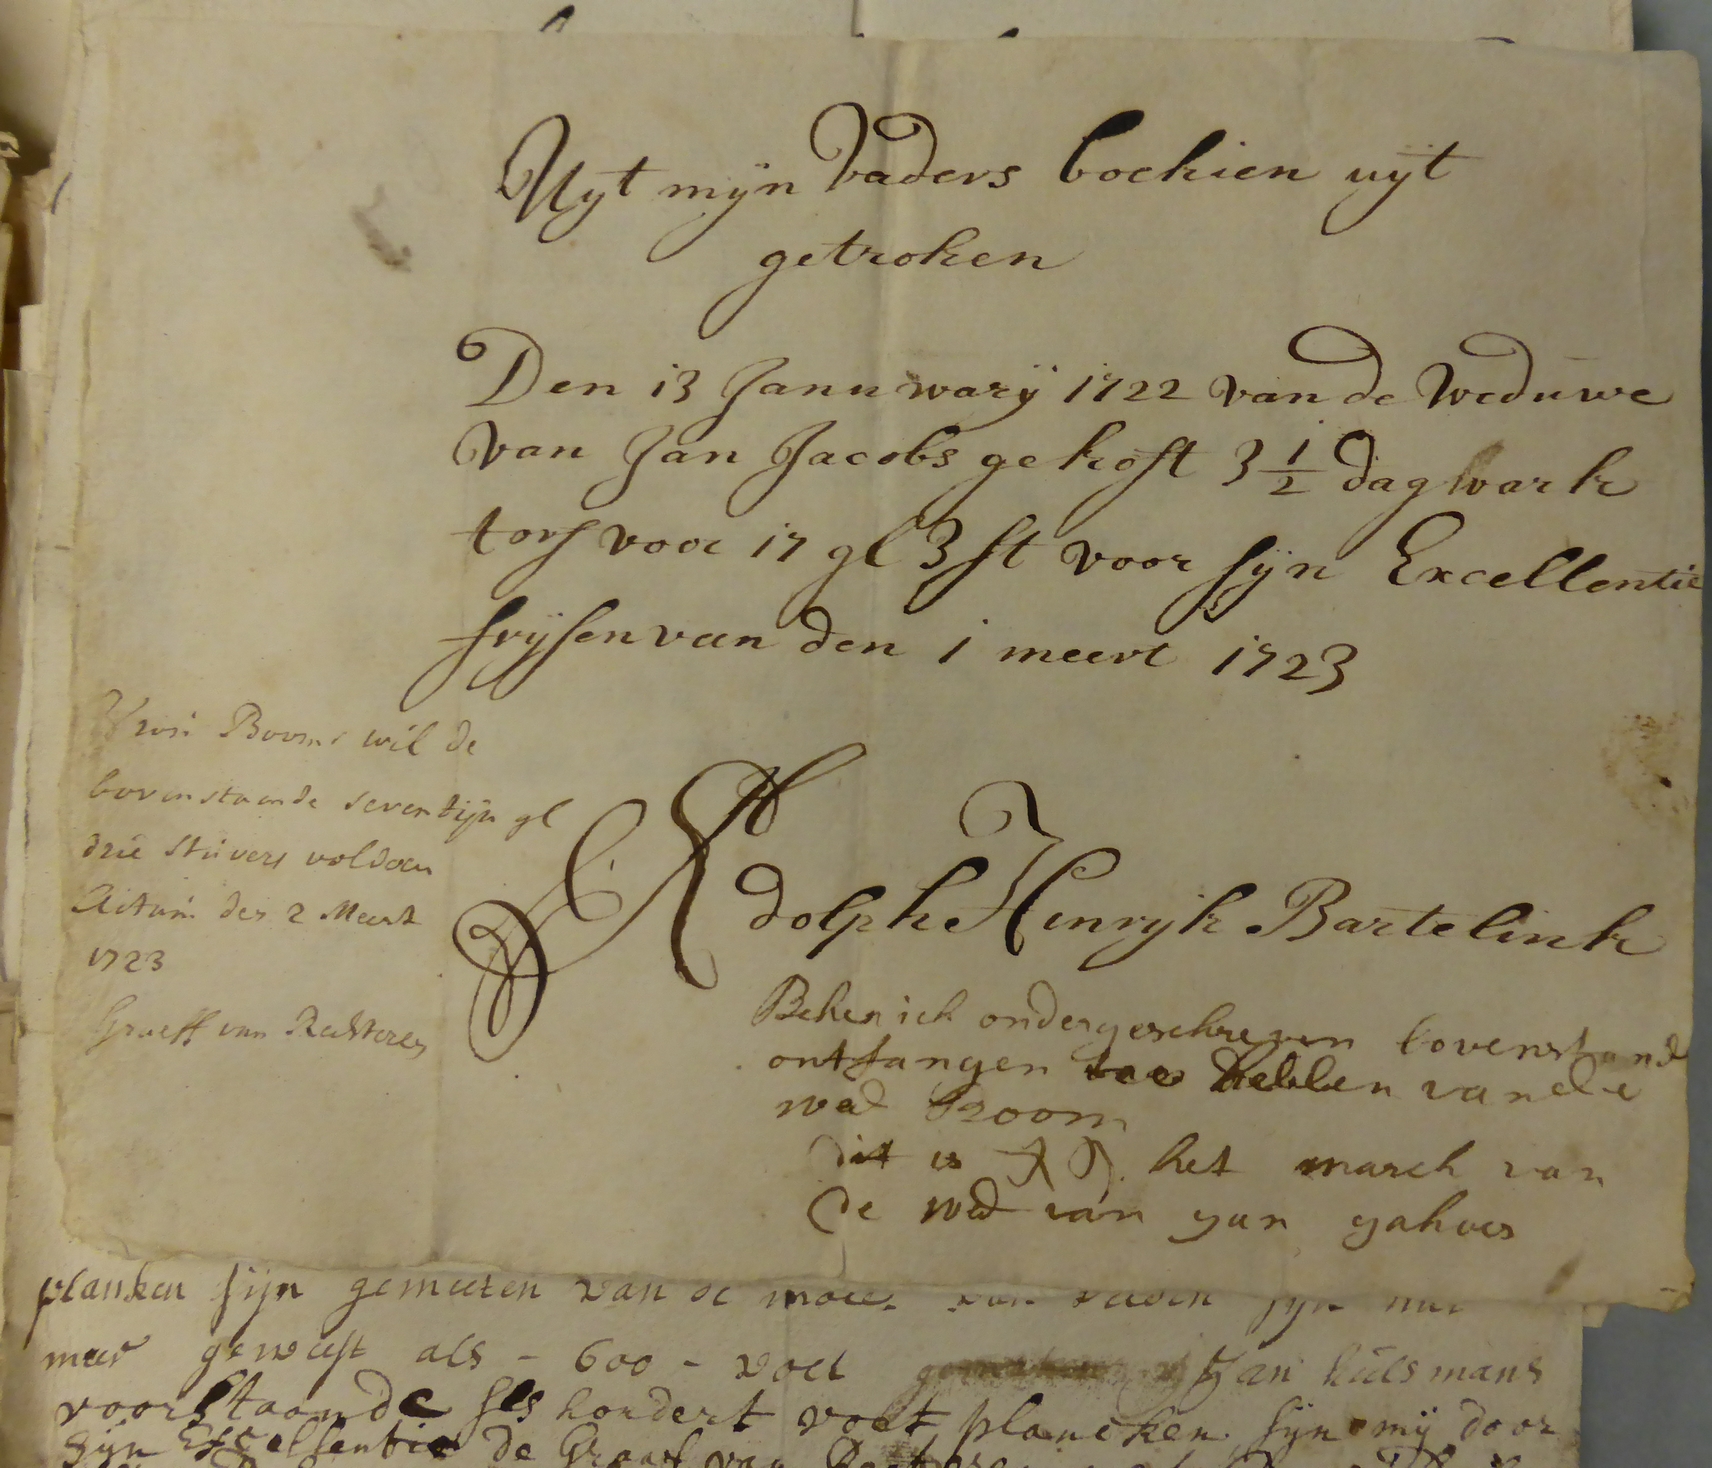 Uyt mijn Vaders boekien uyt
getroken
Den 13 Januwarij 1722 van de Weduwe
van Jan Jacobs gekoft 3 1/2 dagwark
torf voor 17 gl 3 st voor sijn Excellentie
frijsenveen den 1 meert 1723
Adolph Hinryk Bartelink
Booms wil de
bovenstaende seventijn gl
drie stuvers voldoen
Actum den 2 Meert
1723
Graeff van Rechteren
Beken ick ondergeschreven bovenstand
ontfangen hebben van de
wed Boom
dit is het march van
de wed van yan yakoes
planken sijn gemeeten van de sijn
meer geweest als - 600 - voet Jan hulsmans
voorstaande ses hondert voet plancken sijn mij door
sijn Excellentie de Graaf van